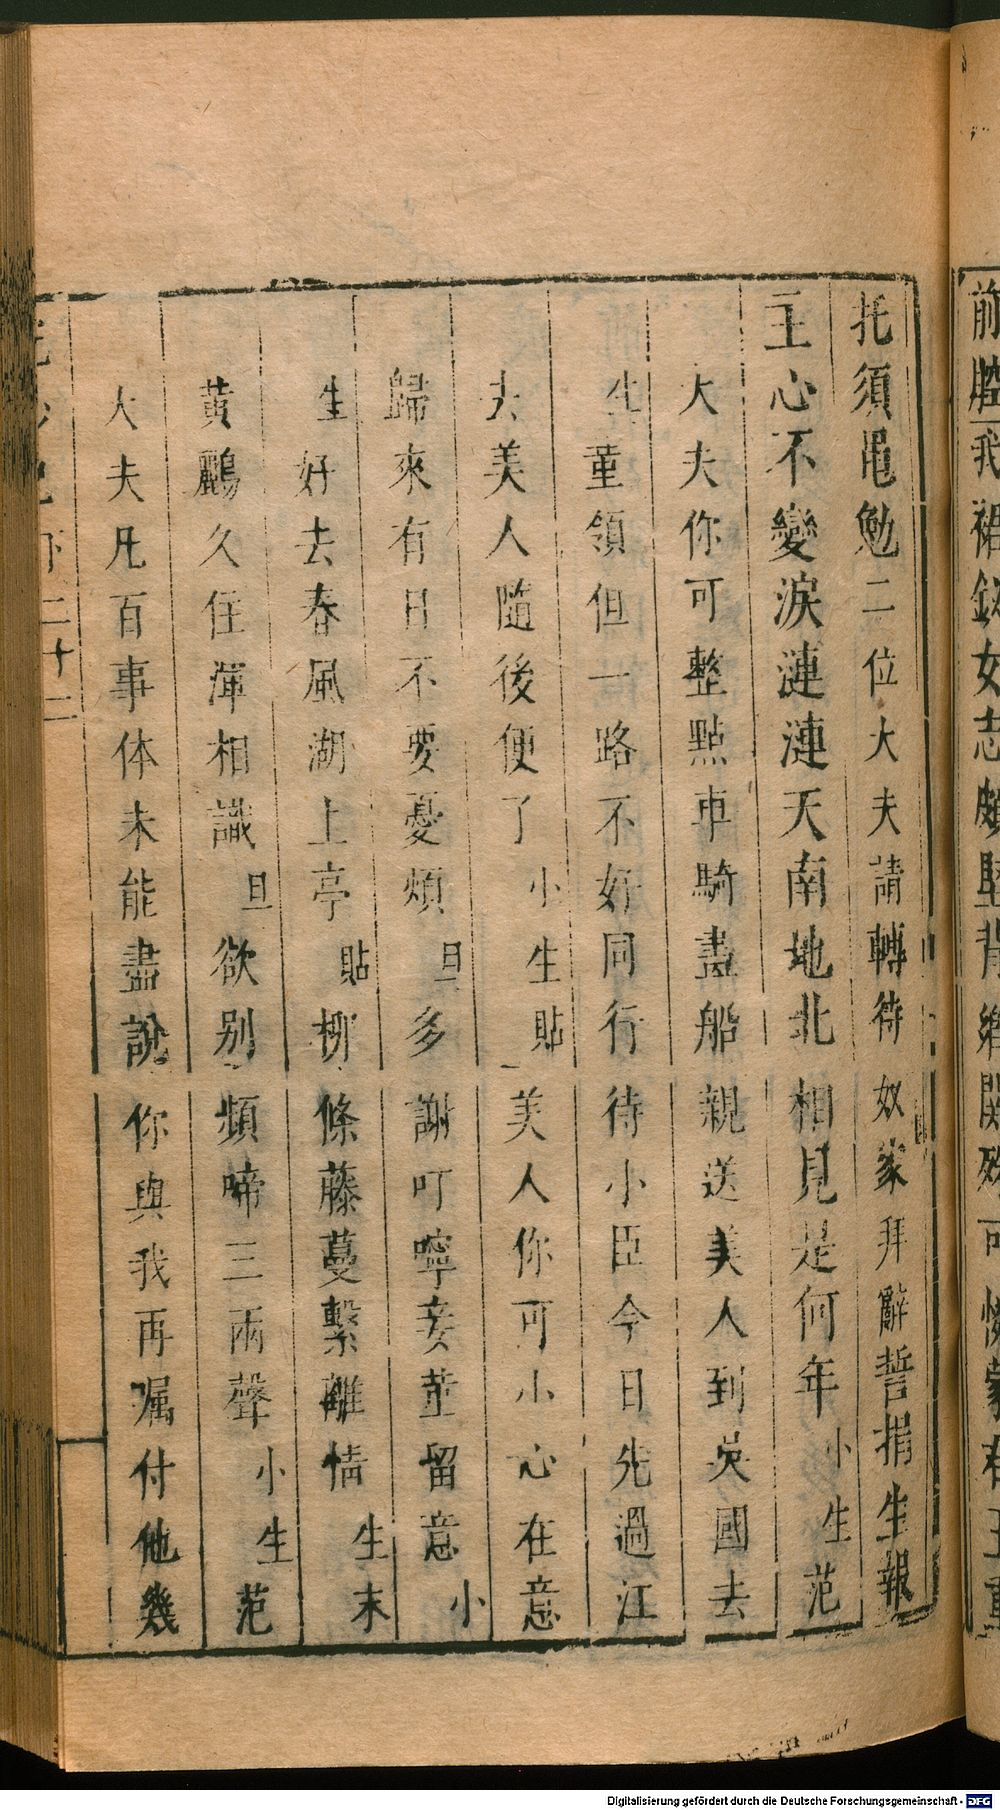 前腔我裙釵女志頗堅背鄉関殁可憐蒙君王重
托須黽勉二位大夫請轉待奴家拜辭誓捐生報
主心不變淚漣漣天南地北相見是何年小生范
大夫你可整點車騎盡船親送美人到吳國去
生董領但一路不好同行待小臣今日先過江
去美人隨後便了小生貼美人你可小心在意
歸來有日不要憂煩旦多謝叮嚀妾董留意小
生好去春風湖上亭貼柳條藤蔓繫離情生末
黃鸝久住渾相識旦欲别頻啼三兩聲小生范
大夫凡百事体未能盡說你與我再嘱付他幾
下二十二
Digitalisierung gefördert durch die Deutsche Forschungsgemeinschaft - DFG